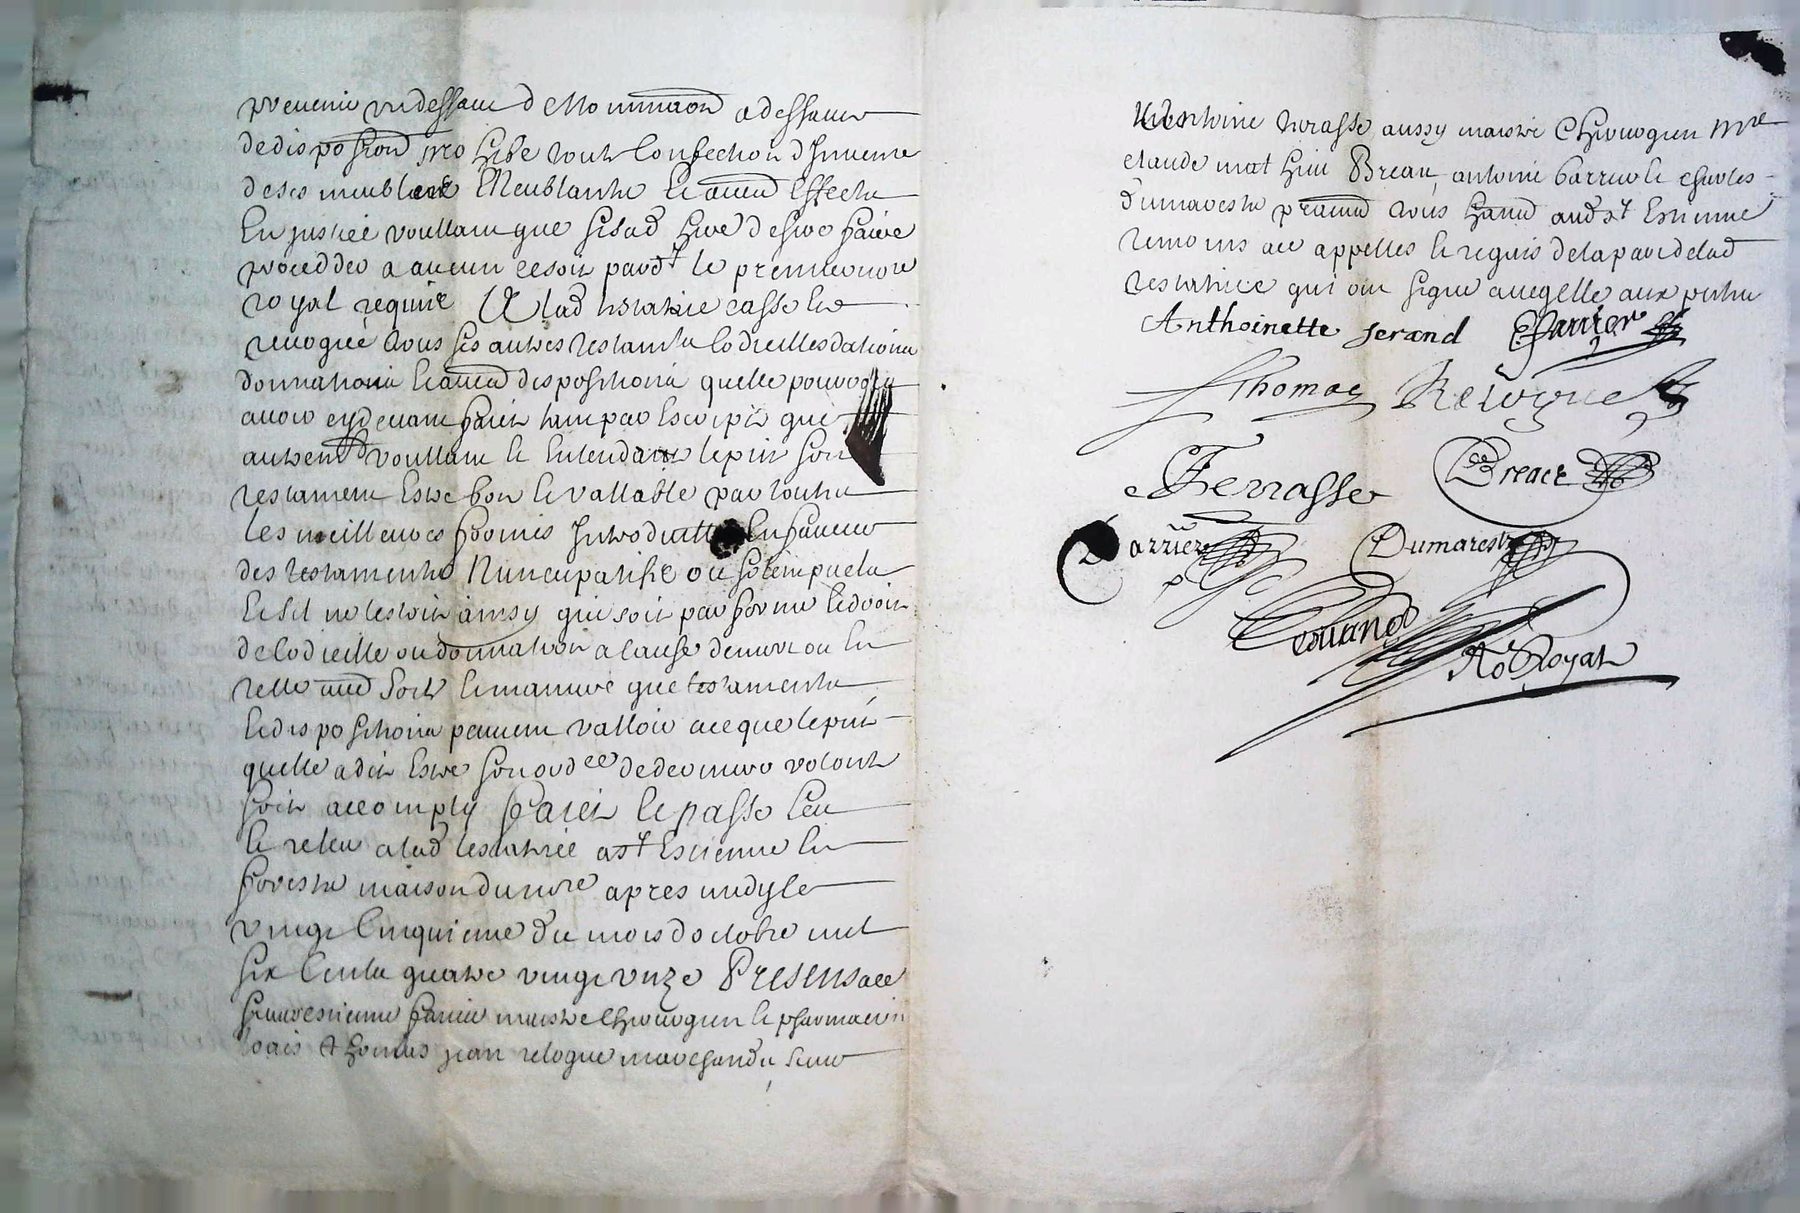 prevenir un deffaut de nomination a deffaut
de disposition prohibe toute confection d Inventre
de ses meubles Meublants et autres effects
En justice voullant que si sad hire desire faire
procedder a aucun ce soit pard^t le premier no^re
royal requis Et lad testatrice casse et
revoque tous ses autres testaments codicilles dations
donnations et autres dispositions quelle pouvoit
avoir cydevant faict tant par Escript que
autrem^t voullant et Entendant le pnt son
testament Estre bon et vallable par toutes
les meilleures formes Introduittes En faveur
des testaments Nuncupatifs ou solempnels
Et sil ne lestoit ainsy que soit par forme et droit
de codicille ou donnation a cause de mort ou En
telle autre sorte et maniere que testaments
et dispositions peuvent valloir ace que le pnt
quelle a dit Estre son ord^ce de derniere volonte
soit accomply faict et passe leu
et releu a lad testatrice a s^t Estienne En
forests maison du no^re apres midy le
vingt Cinquieme du mois d octobre mil
six Cents quatre vingt unze Presens a ce
sieurs estienne farrier maistre Chirurgien et pharmacien
thomas jean relogue marchand sieur
Anthoine terasse aussy maistre Chirurgien M^re
claude mathieu Breau antoine barrier et charles
dumarests praticien tous habitans aud s^t Estienne
temoins ace appelles et requis de la part de lad
testatrice qui ont signe avec elle aux pntes
Anthoinette Serand Efarrier
Thomas Relogue
Terrasse Breace
Barrier Dumarestz
No^re Royal